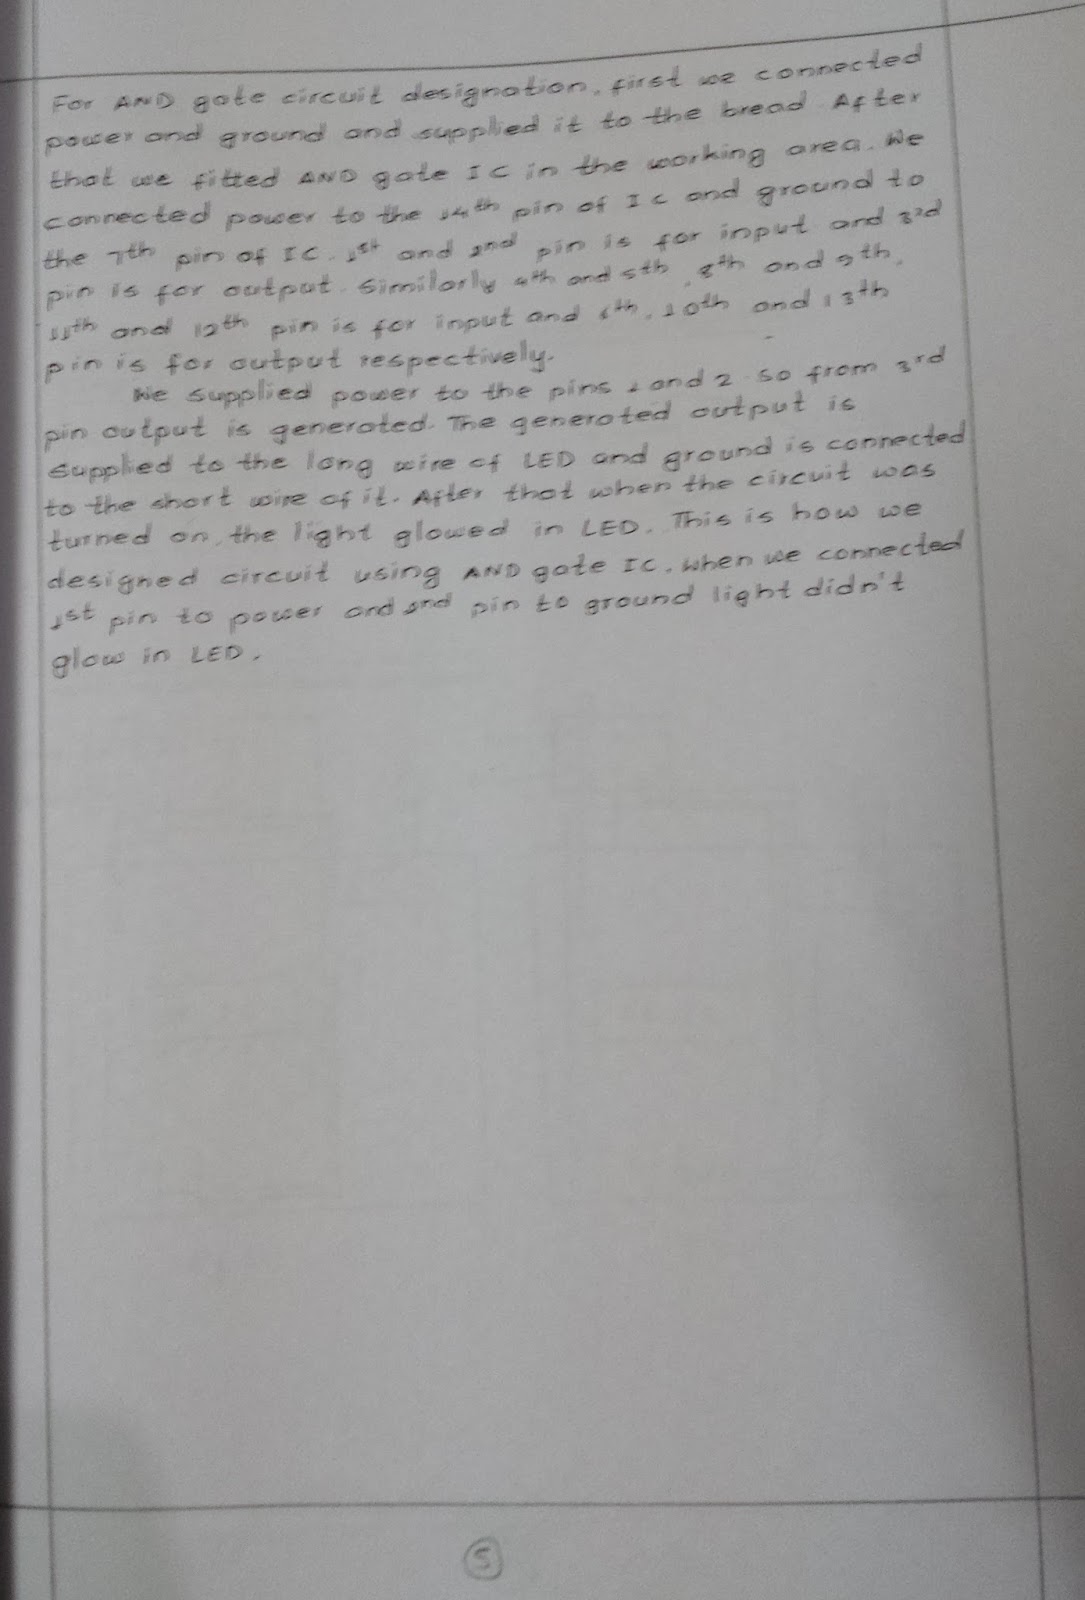 For AND gate circuit designation, first we connected
power and ground and supplied it to the bread. After
that we fitted AND gate IC in the working area. We
connected power to the 14th pin of IC and ground to
the 7th pin of IC. 1st and 2nd pin is for input and 3rd
pin is for output. Similarly 4th and 5th, 8th and 9th,
11th and 12th pin is for input and 6th, 10th and 13th
pin is for output respectively.
We supplied power to the pins 1 and 2. So from 3rd
pin output is generated. The generated output is
supplied to the long wire of LED and ground is connected
to the short wire of it. After that when the circuit was
turned on, the light glowed in LED. This is how we
designed circuit using AND gate IC. When we connected
1st pin to power and 2nd pin to ground light didn't
glow in LED.
5